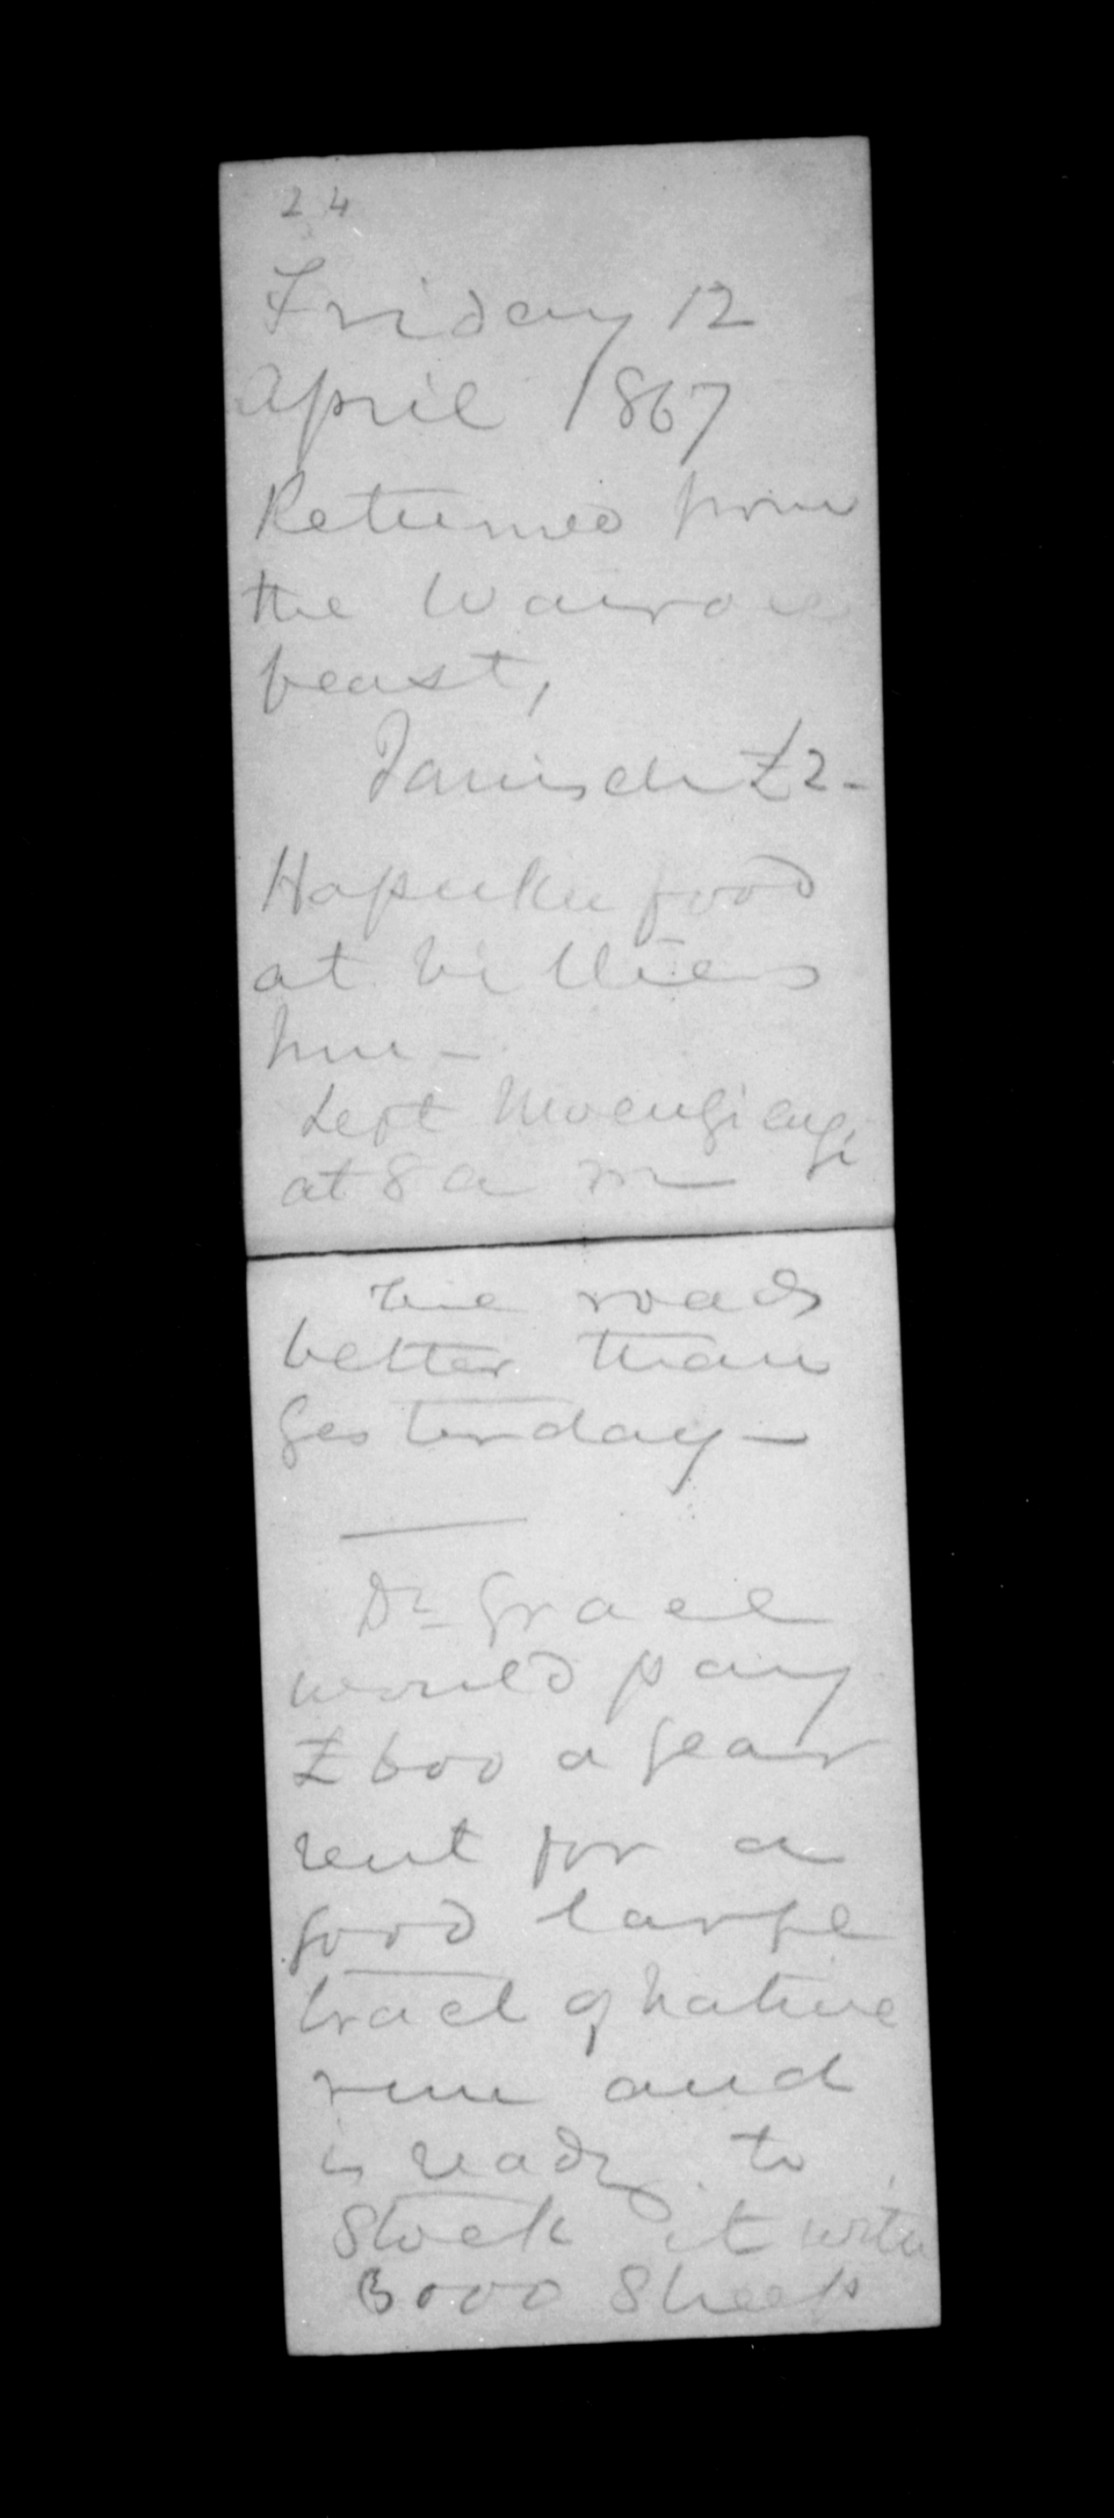 24
Friday 12
April 1867
Returned from
the Wairoa
feast,
£2-
Hapuku food
at
Left Moengiangi
at 8 a m
The roads
better than
yesterday —
Dr Grace
would pay
£600 a year
rent for a
good large
tract of native
run and
is ready to
Stock it with
3000 Sheep